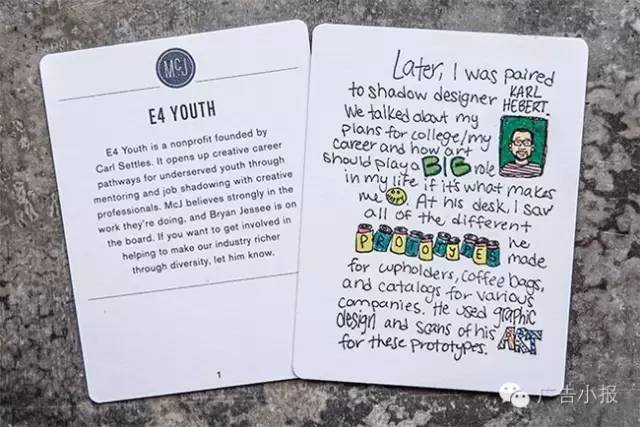 McJ
E4 YOUTH
E4 Youth is a nonprofit founded by
Carl Settles. It opens up creative career
pathways for underserved youth through
mentoring and job shadowing with creative
professionals. McJ believes strongly in the
work they're doing, and Bryan Jessee is on
the board. If you want to get involved in
helping to make our industry richer
through diversity, let him know.
1
Later, I was paired
to shadow designer KARL
HEBERT.
We talked about my
plans for college/my
career and how art
should play a BIG role
in my life if it's what makes
me. At his desk, I saw
all of the different
PROTOYPES he
made
for cupholders, coffee bags,
and catalogs for various
companies. He used graphic
design and scans of his ART
for these prototypes.
广告小报